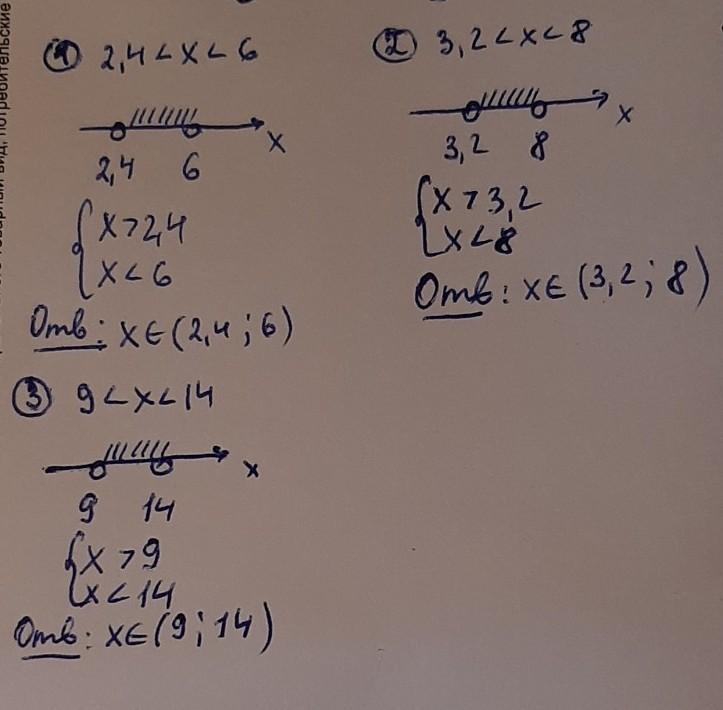 товарный вид, потребительские
① 2,4 < x < 6
x
2,4 6
{ x > 2,4
x < 6
Отв: x ∈ (2,4 ; 6)
② 3,2 < x < 8
x
3,2 8
{ x > 3,2
x < 8
Отв: x ∈ (3,2 ; 8)
③ 9 < x < 14
x
9 14
{ x > 9
x < 14
Отв: x ∈ (9 ; 14)